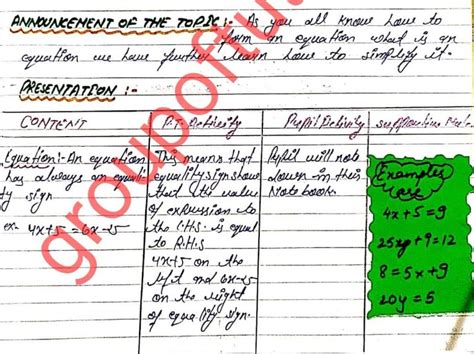 ANNOUNCEMENT OF THE TOPIC:- As you all know how to
form an equation what is an
equation we have further learn how to simplify it.
PRESENTATION :-
CONTENT
P.T. Activity
Pupil Activity
Equation:- An equation
has always an equali
ty sign
ex- 4x+5 = 6x-25
This means that
equality sign show
that the value
of expression to
the L.H.S is equal
to R.H.S
4x+5 on the
left and 6x-25
on the right
of equality sign.
Pupil will note
down in their
Notebook.
Examples
are
4x+5=9
25xy+9=12
8=5x+9
20y=5
groupoftu